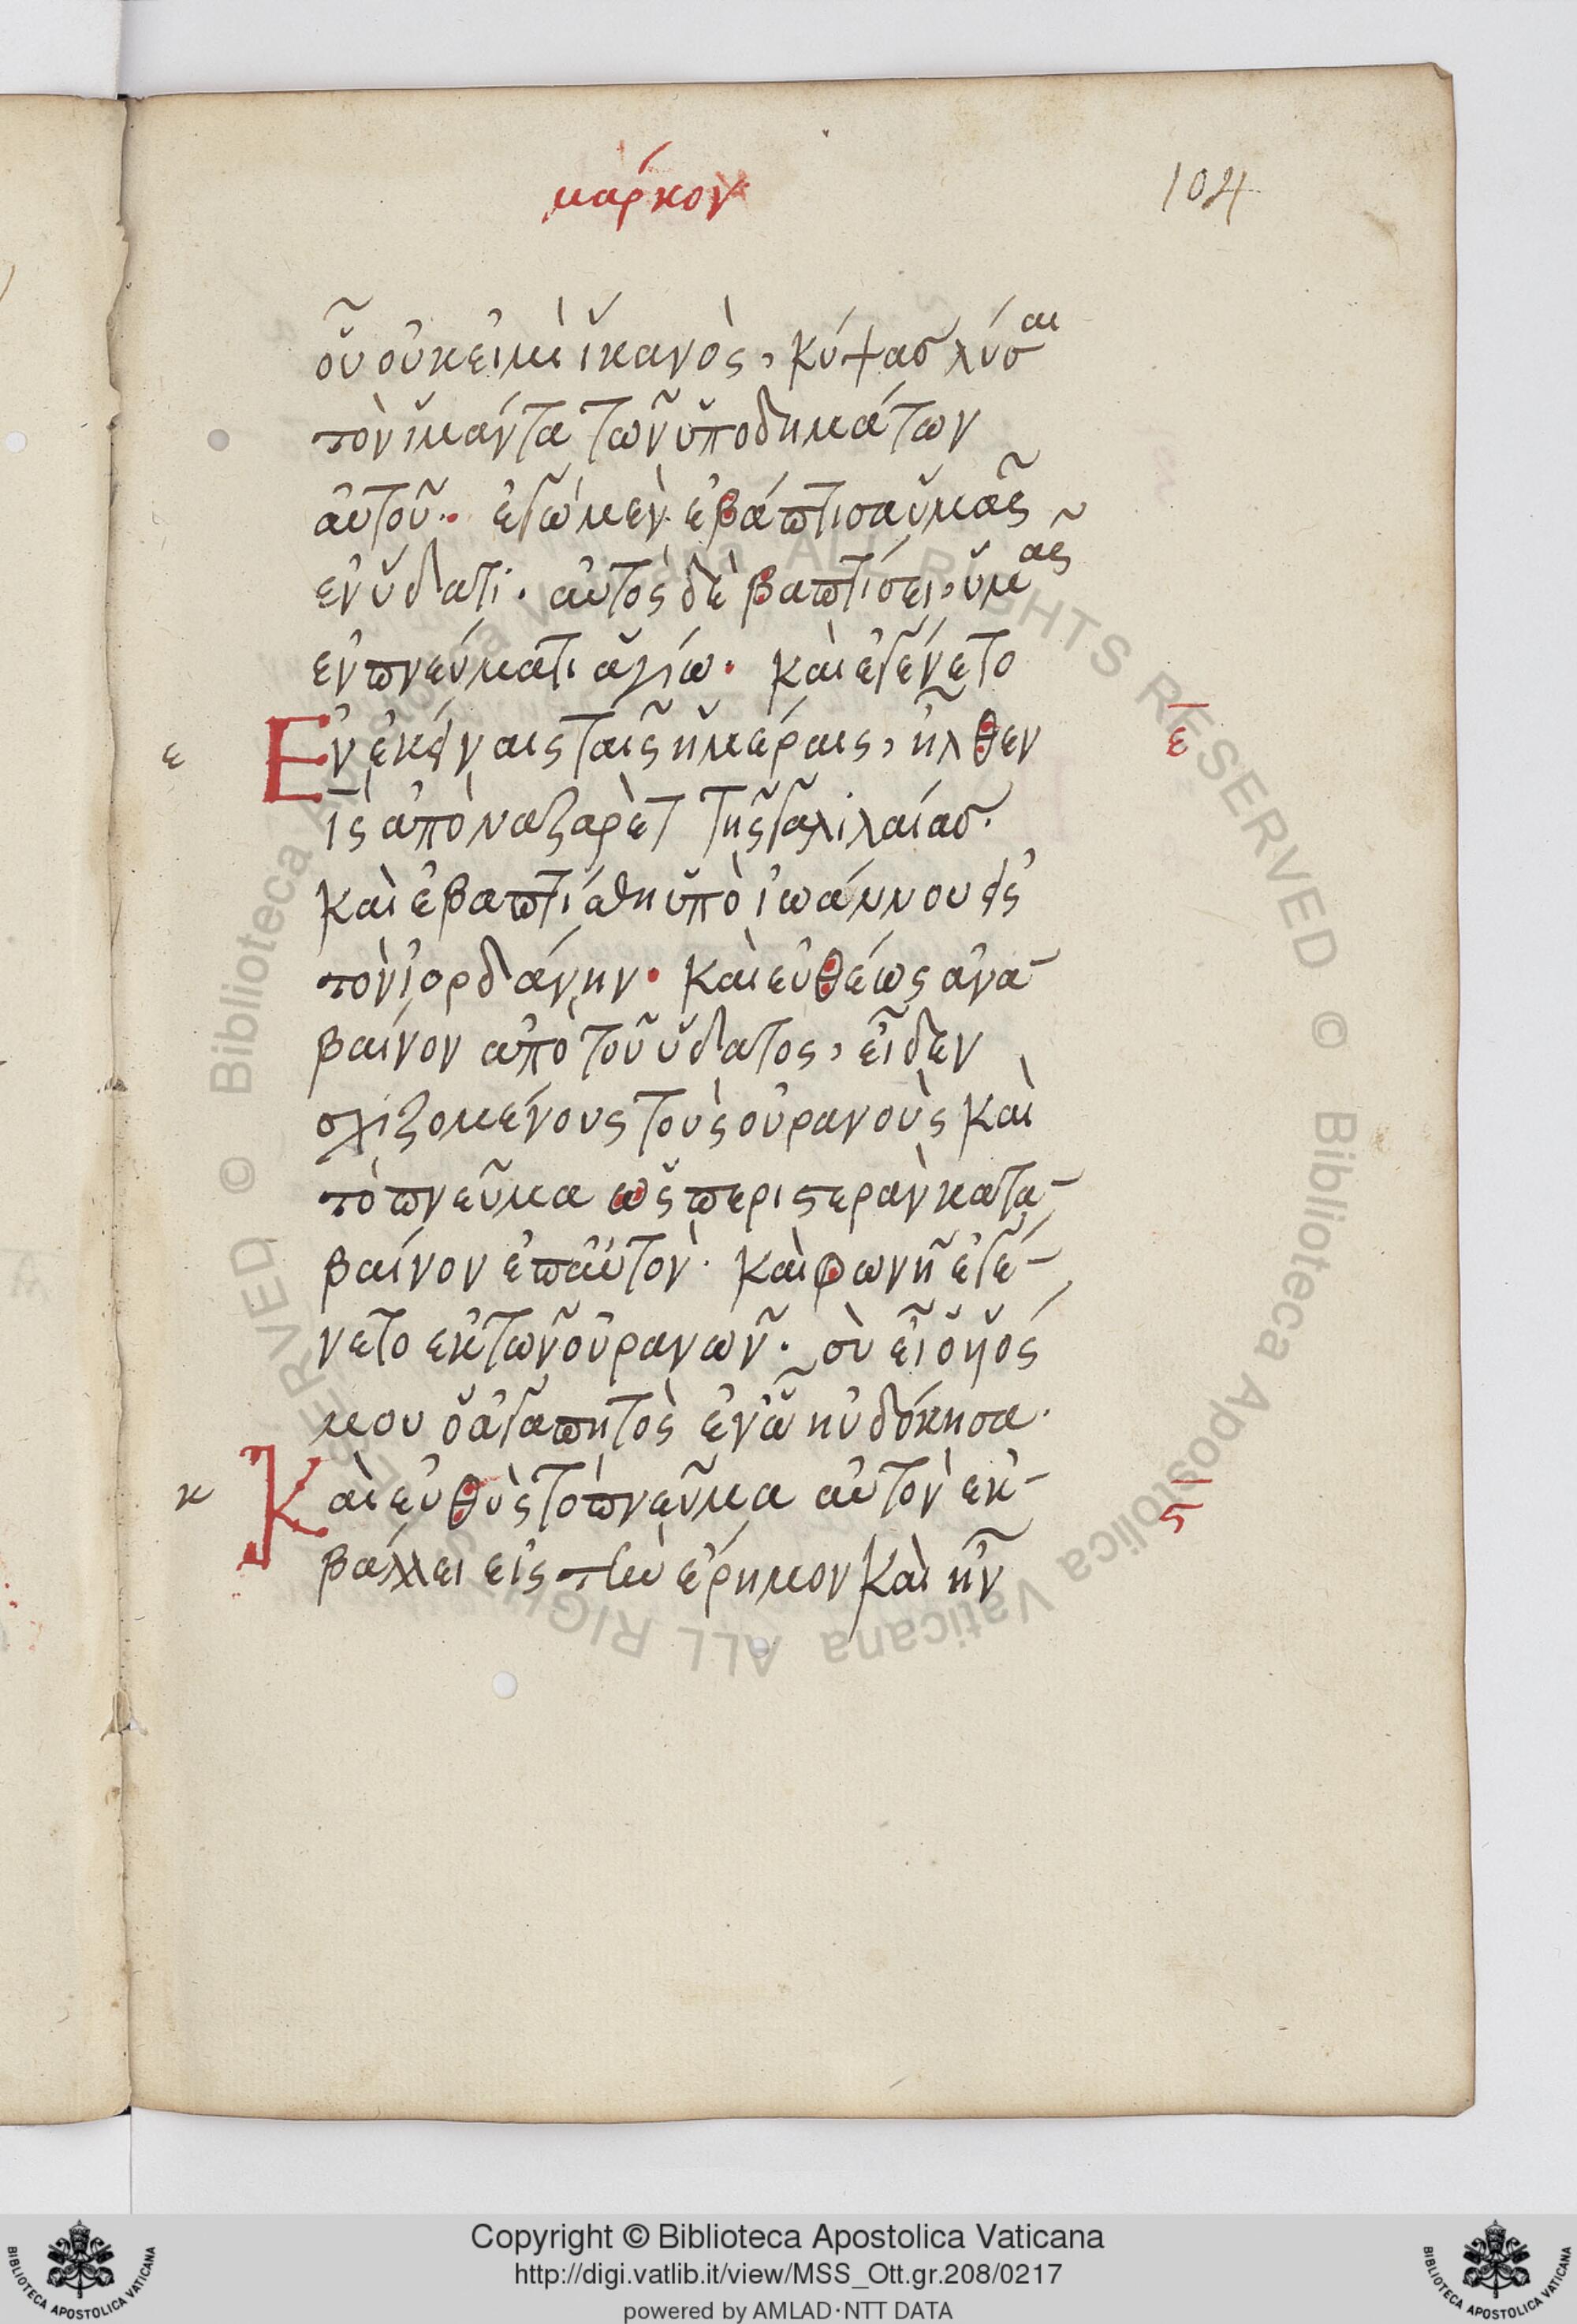 μάρκον
104
οὗ οὐκ εἰμὶ ἱκανὸς, κύψασ λύσαι
τὸν ἱμάντα τῶν ὑποδημάτων
αὐτοῦ. ἐγὼ μὲν ἐβάπτισα ὑμᾶς
ἐν ὕδατι. αὐτὸς δὲ βαπτίσει, ὑμᾶς
ἐν πνεύματι ἁγίω. καὶ ἐγένετο
ε Ἐν ἐκείναις ταῖς ἡμέραις, ἦλθεν ε̅
ι̅ς̅ ἀπὸ ναζαρὲτ τῆς γαλιλαίασ.
καὶ ἐβαπτίσθη ὑπὸ ἰωάννου εἰς
τὸν ἰορδάνην. καὶ εὐθέως ἀνα-
βαίνον ἀπὸ τοῦ ὕδατος, εἶδεν
σχιζομένους τοὺς οὐρανοὺς καὶ
τὸ πνεῦμα ὡς περιστερὰν κατα-
βαίνον ἐπ αὐτὸν. καὶ φωνῆ ἐγέ-
νετο ἐκ τῶν οὐρανῶν. σὺ εἶ ὁ ὑιός
μου ὁ ἀγαπητὸς ἐν ὧ ηὐδόκησα.
κ Καὶ εὐθὺς τὸ πνεῦμα αὐτὸν ἐκ- ς̅
βάλλει εἰς τὴν ἔρημον καὶ ἦν
Copyright © Biblioteca Apostolica Vaticana
http://digi.vatlib.it/view/MSS_Ott.gr.208/0217
powered by AMLAD·NTT DATA
BIBLIOTECA APOSTOLICA VATICANA
BIBLIOTECA APOSTOLICA VATICANA
© Biblioteca Apostolica Vaticana ALL RIGHTS RESERVED © Biblioteca Apostolica Vaticana ALL RIGHTS RESERVED